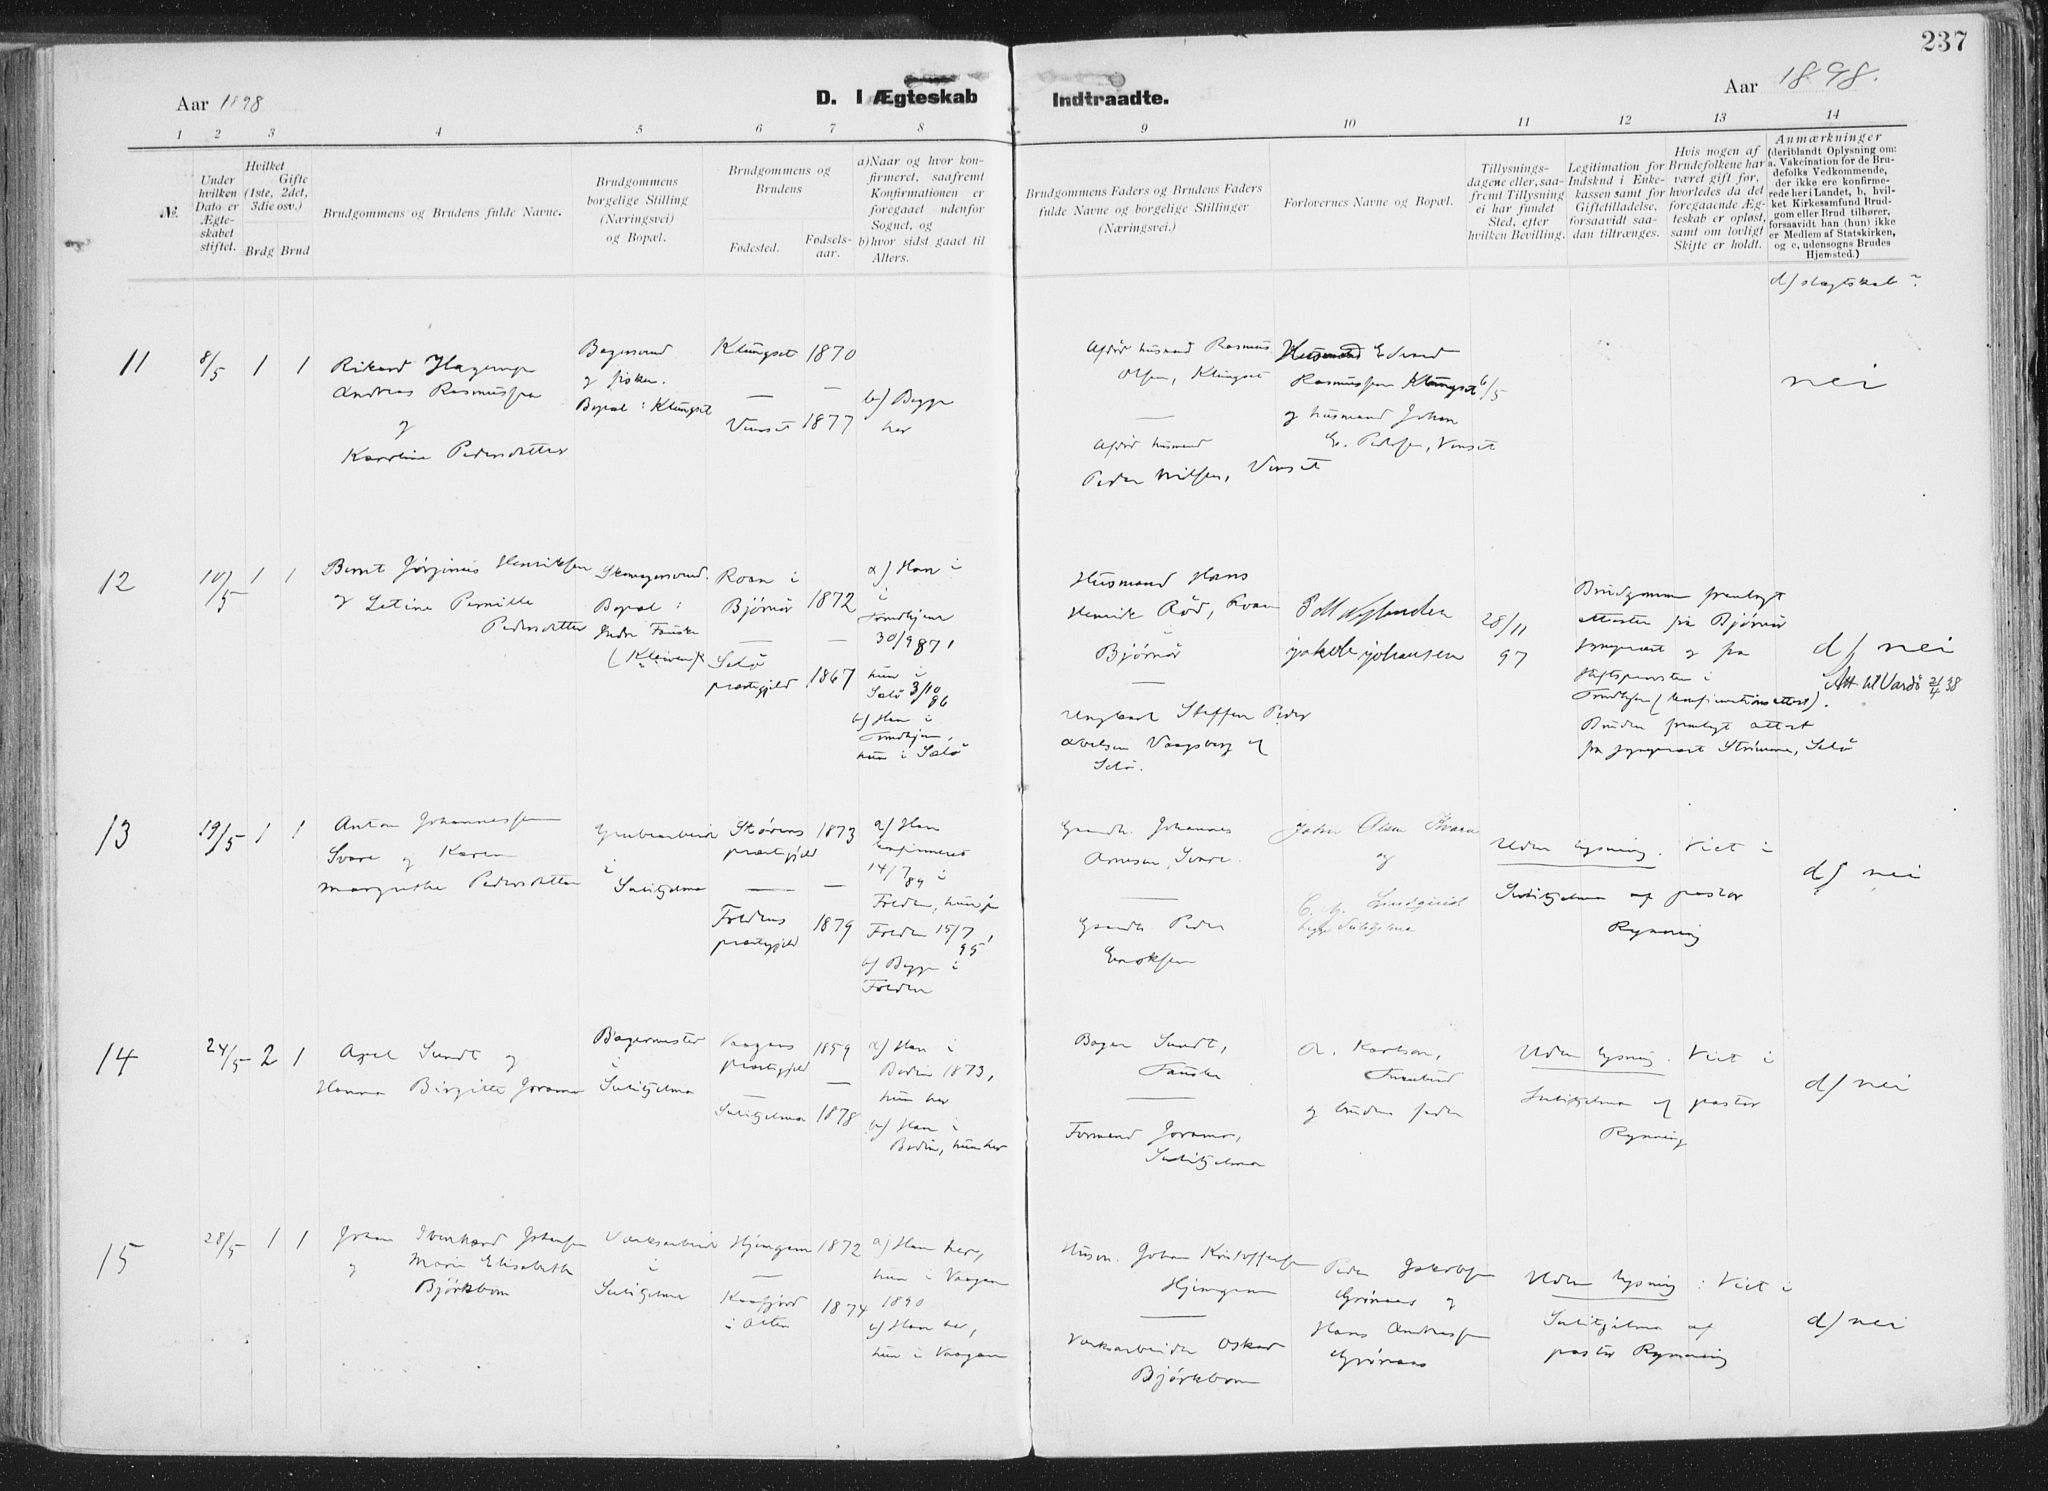 237
Aar 1898
D. I Ægteskab Indtraadte.
Aar 1898.
1 2 3 4 5 6 7 8 9 10 11 12 13 14
№.
Under
hvilken
Dato er
Ægte-
skabet
stiftet.
Hvilket
Gifte
(1ste, 2det,
3die osv.)
Brdg Brud
Brudgommens og Brudens fulde Navne.
Brudgommens
borgelige Stilling
(Næringsvei)
og Bopæl.
Brudgommens og
Brudens
Fødested.
Fødsels-
aar.
a)Naar og hvor kon-
firmeret, saafremt
Konfirmationen er
foregaaet udenfor
Sognet, og
b)hvor sidst gaaet til
Alters.
Brudgommens Faders og Brudens Faders
fulde Navne og borgelige Stillinger
(Næringsvei.)
Forlovernes Navne og Bopæl.
Tillysnings-
dagene eller, saa-
fremt Tillysning
ei har fundet
Sted, efter
hvilken Bevilling.
Legitimation for
Indskud i Enke-
kassen samt for
Giftetilladelse,
forsaavidt saa-
dan tiltrænges.
Hvis nogen af
Brudefolkene har
været gift før,
hvorledes da det
foregaaende Æg-
teskab er opløst,
samt om lovligt
Skifte er holdt.
Anmærkninger
(deriblandt Oplysning om:
a. Vakcination for de Bru-
defolks Vedkommende,
der ikke ere konfirme-
rede her i Landet, b, hvil-
ket Kirkesamfund Brud-
gom eller Brud tilhører,
forsaavidt han (hun) ikke
er Medlem af Statskirken,
og c, udensogns Brudes
Hjemsted.)
d) slægtskab?
11 8/5 1 1
Rikard Hagerup
Andreas Rasmussen
og
Karoline Pedersdatter
Bagersvend
og fisker.
Bopæl: Klungset
Klungset 1870
—
Venset 1877
b) Begge
her
Afdød husmand Rasmus
Olsen, Klungset
—
Afdød husmand
Peder Nilsen, Venset
Husmand Edvard
Rasmussen Klungset
og husmand Johan
E. Pedersen, Venset
6/5
nei
12 10/5 1 1
Bernt Jørginus Henriksen
og Letine Pernille
Pedersdatter
Skomagersvend.
Bopæl:
Indre Fauske
(Kleiven)
Roan i
Bjørnør 1872
—
Selø
præstegjeld 1867
a) Han i
Trondhjem
30/9 871
hun i
Selø 3/10
86
b) Han i
Trondhjem,
hun i Selø
Husmand Hans
Henrik Rød, Roan
i
Bjørnør
—
Ungkarl Steffen Peder
Abelsen Vaagsberg af
Selø.
jakob johansen
28/11
97
Brudgommen fremlagt
attester fra Bjørnør
og fra
i
Trondhjem (konfirmationsattest).
Bruden fremlagt attest
fra Selø
d) nei
Att. til Vardø 21/4 38
13 19/5 1 1
Anton Johannessen
Svare og Karen
Margrethe Pedersdatter
Grubearbeider
i
Sulitjelma
Størens 1873
præstegjeld
—
Foldens
præstegjeld 1879
a) Han
konfirmeret
14/7 89 i
Folden, hun i
Folden 15/7
95
b) Begge i
Folden
Gaardb. Johannes
Arnesen, Svare.
—
Gaardb. Peder
Enoksen
John Olsen Svare
og
C. G. Lindqvist
begge Sulitjelma
Uden lysning. Viet i
Sulitjelma af pastor
Rynning
d) nei
14 24/5 2 1
Axel Sundt og
Hanna Birgitte Jorama
Bagermester
i
Sulitjelma
Vaagens 1859
præstegjeld
—
Sulitjelma 1878
a) Han i
Bodin 1873,
hun her
b) Han i
Bodin, hun her
Bager Sundt,
Fauske
—
Formand Jorama,
Sulitjelma
A. Karlson,
Furulund
og brudens fader
Uden lysning. Viet i
Sulitjelma af pastor
Rynning
d) nei
15 28/5 1 1
Johan Evenhard Johansen
og Marie Elisabeth
Björkbom
Værksarbeider
i
Sulitjelma
Hjemgam 1872
—
Kaafjord
i Alten 1874
a) Han her,
hun i Vaagan
1890
b) Han her,
hun i Vaagan
Husm. Johan Kristoffersen
Hjemgam
—
Værksarbeider Oskar
Björkbom
Peder Jakobsen
Grønaas og
Hans Andreassen
Grønaas
Uden lysning: Viet i
Sulitjelma af
pastor Rynning
d) nei